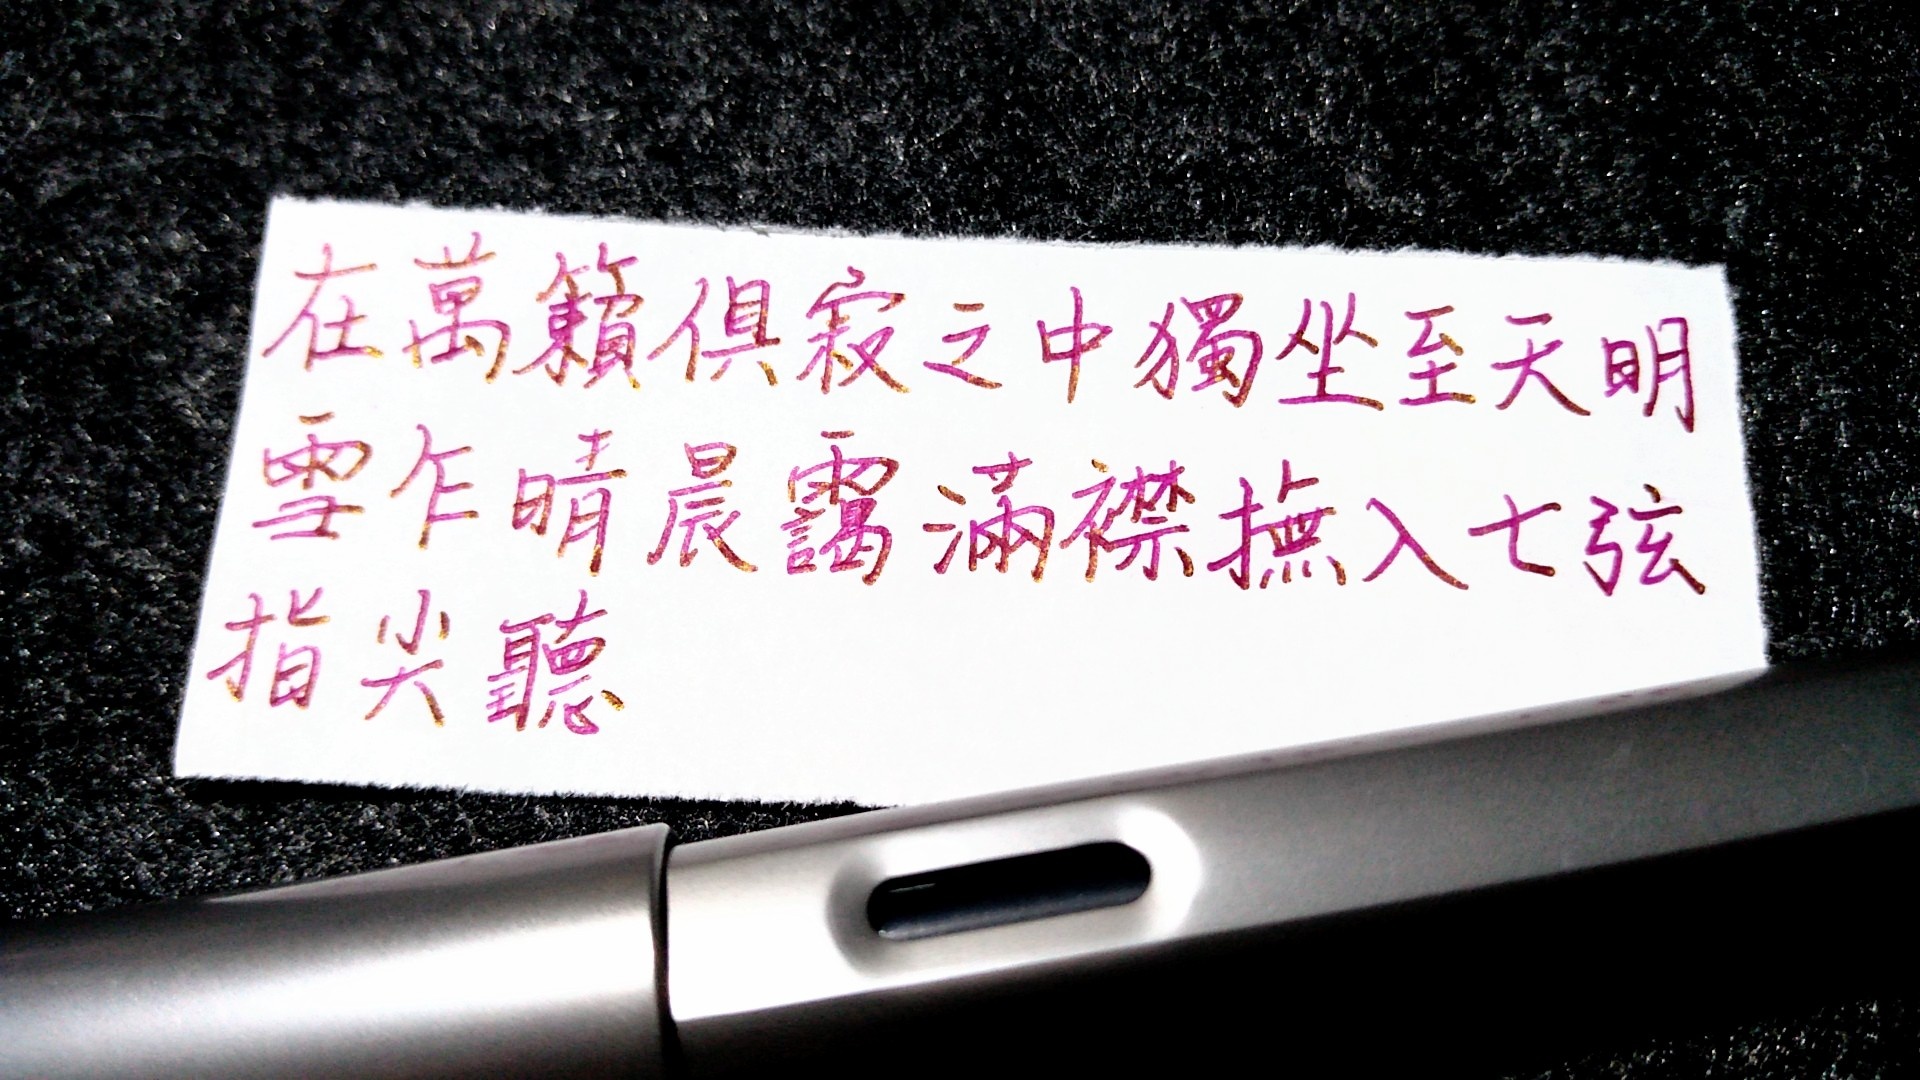 在萬籟俱寂之中獨坐至天明
雪乍晴晨靄滿襟撫入七弦
指尖聽